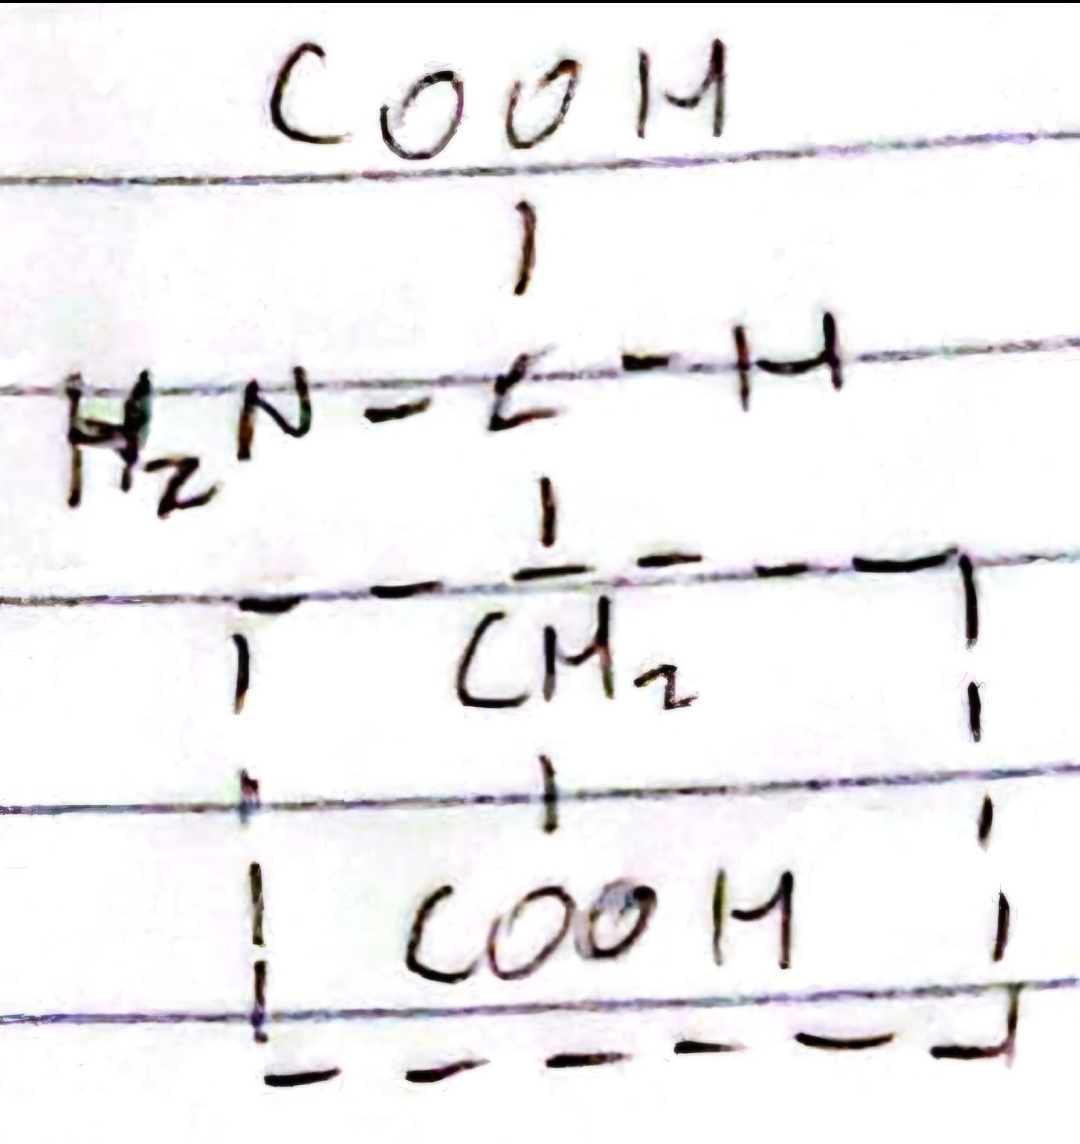 COOH
H₂N-C-H
CH₂
COOH